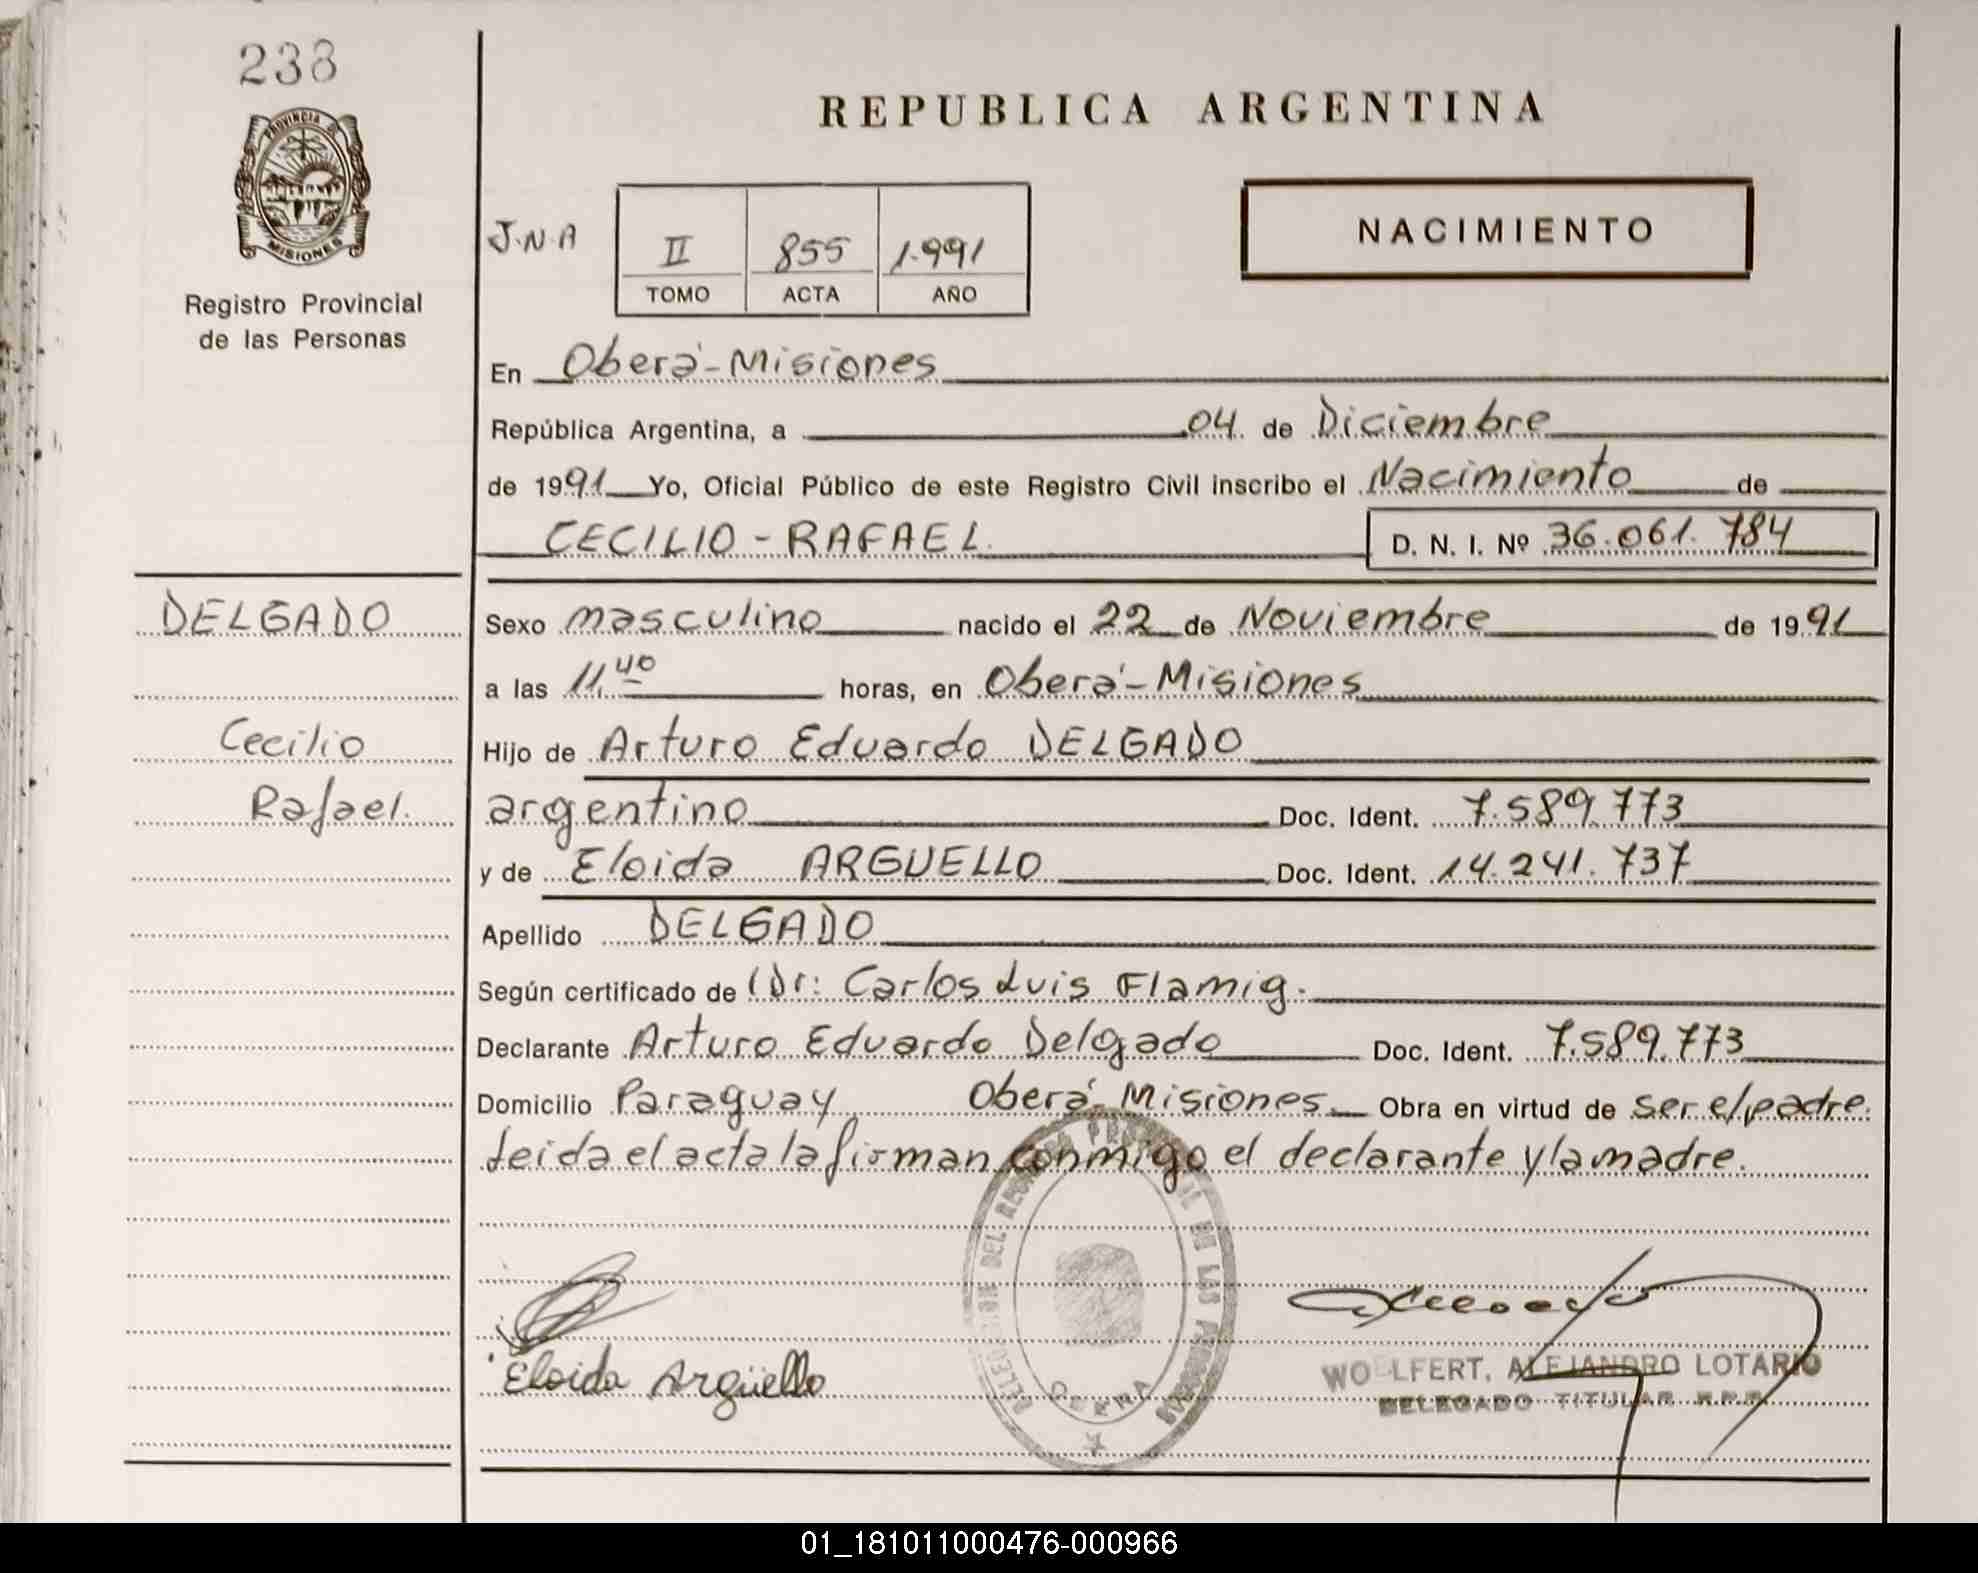 238
PROVINCIA DE
MISIONES
Registro Provincial
de las Personas
REPUBLICA ARGENTINA
NACIMIENTO
J.N.A
II 855 1.991
TOMO ACTA AÑO
En Oberá-Misiones
República Argentina, a 04 de Diciembre
de 1991 Yo, Oficial Público de este Registro Civil inscribo el Nacimiento de
CECILIO-RAFAEL D. N. I. Nº 36.061.784
DELGADO
Cecilio
Rafael.
Sexo masculino nacido el 22 de Noviembre de 1991
a las 11,40 horas, en Oberá-Misiones
Hijo de Arturo Eduardo DELGADO
argentino Doc. Ident. 7.589.773
y de Eloida ARGUELLO Doc. Ident. 14.241.737
Apellido DELGADO
Según certificado de (Dr: Carlos Luis Flamig.
Declarante Arturo Eduardo Delgado Doc. Ident. 7.589.773
Domicilio Paraguay Oberá-Misiones Obra en virtud de ser el padre.
Leida el acta la firman conmigo el declarante y la madre.
Eloida Argüello
DEL REGISTRO DE LAS
OBERA
WOELFERT, ALEJANDRO LOTARIO
DELEGADO TITULAR R.P.P.
01_181011000476-000966